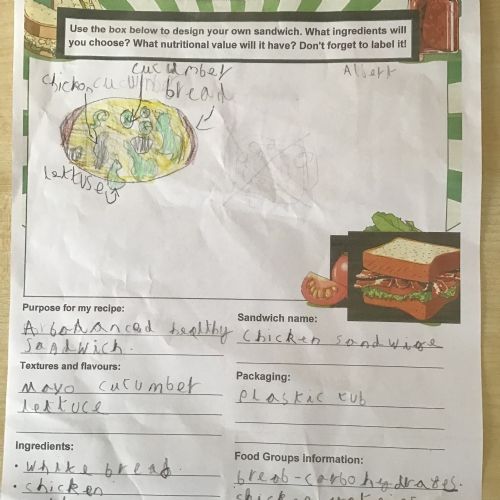 Use the box below to design your own sandwich. What ingredients will
you choose? What nutritional value will it have? Don't forget to label it!
Albert
cucumber
chicken
bread
lettuse
Purpose for my recipe:
A balanced healthy
Sandwich.
Sandwich name:
Chicken sandwige
Textures and flavours:
mayo cucumber
lettuce
Packaging:
plastic tub
Ingredients:
• white bread.
• chicken
Food Groups information:
breab - carbohydrates.
chicken